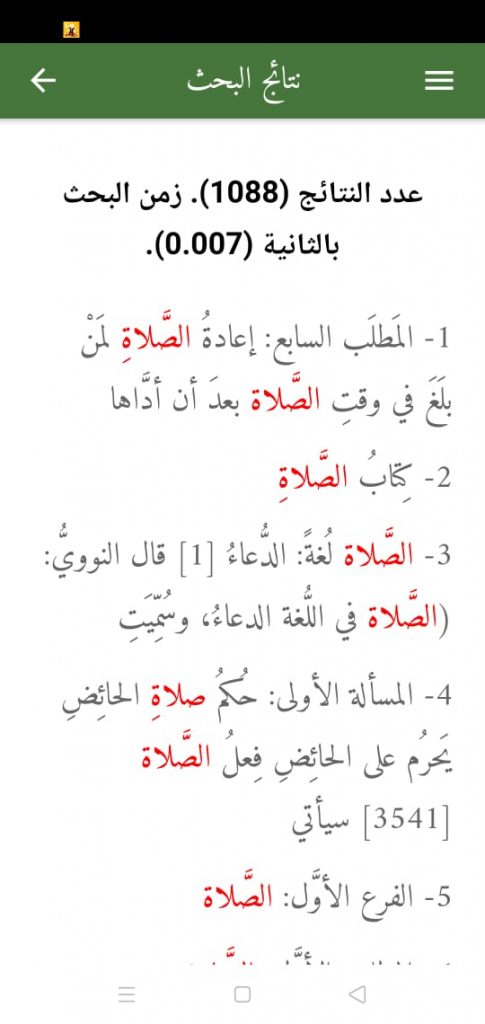 نتائج البحث
عدد النتائج (1088). زمن البحث
بالثانية (0.007).
1- المَطلَب السابع: إعادةُ الصَّلاةِ لمَنْ
بلَغَ في وقتِ الصَّلاة بعدَ أن أدَّاها
2- كِتابُ الصَّلاةِ
3- الصَّلاة لُغةً: الدُّعاءُ [1] قال النوويُّ:
(الصَّلاة في اللُّغة الدعاءُ، وسُمِّيَتِ
4- المسألة الأولى: حُكمُ صلاةِ الحائِضِ
يَحرُم على الحائِضِ فِعلُ الصَّلاة
[3541] سيأتي
5- الفرع الأوَّل: الصَّلاة